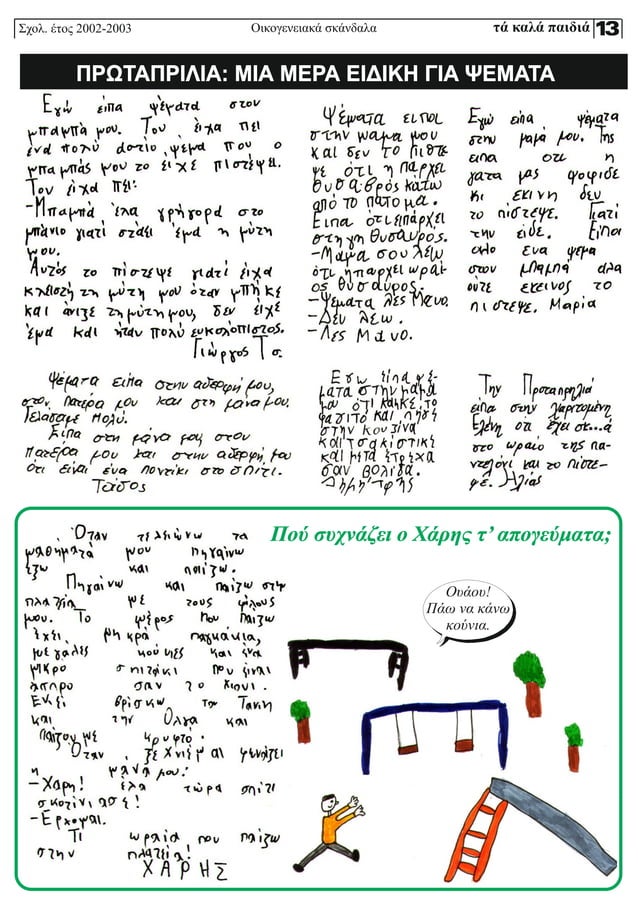 Σχολ. έτος 2002-2003
Οικογενειακά σκάνδαλα
τά καλά παιδιά 13
ΠΡΩΤΑΠΡΙΛΙΑ: ΜΙΑ ΜΕΡΑ ΕΙΔΙΚΗ ΓΙΑ ΨΕΜΑΤΑ
Εγώ είπα ψέματα στον
μπαμπά μου. Του είχα πει
ένα πολύ αστείο ψέμα που ο
μπαμπάς μου το είχε πιστέψει.
Του είχα πει:
-Μπαμπά έλα γρήγορα στο
μπάνιο γιατί στάζει έμα η μύτη
μου.
Αυτός το πίστεψε γιατί είχα
κλειστή τη μύτη μου όταν μπήκε
και άνιξε τη μύτη μου, δεν είχε
έμα και ήταν πολύ ευκολόπιστος.
Γιώργος Τσ.
Ψέματα ειποι
στην μαμα μου
και δεν το πιστε
ψε ότι η παρχει
θυσαβρός κάτω
από το πατομα.
Ειπα ότι ειπάρχει
στη γη θυσαυρος.
-Μαμα σου λεω
ότι ήπαρχει ωραί-
ος θυσαυρος.
-Ψεματα λες Μανο.
-Δεν λεω.
-Λες Μανο.
Εγώ είπα ψέματα
στην μαμά μου. Της
ειπα οτι η
γατα μας ψοφισε
κι εκινη δεν
το πίστεψε. Γιατί
την είδε. Είποι
αλο ενα ψεμα
στον μπαμπα αλα
ούτε εκεινος το
πιστεψε. Μαρία
Ψέματα είπα στην αδερφή μου,
στον πατέρα μου και στη μάνα μου.
Γελάσαμε πολύ.
Είπα στη μάνα μας στον
πατέρα μου και στην αδερφή μου
ότι είναι ένα ποντίκι στο σπίτι.
Τάσος
Εγω είπα ψε-
ματα στην μαμα
μου ότι καικε το
φαγιτό και πήγε
στην κουζινα
και τσακίστικε
και μετα έτρεχα
σαν βολίδα.
Δημήτρης
Την Πρωταπρηλιά
είπα στην χαριτομένη
Ελένη οτι έλει σκ...ά
στο ωραίο της πα-
ντελόνι και το πίστε-
ψε. Ηλίας
Όταν τελειώνω τα
μαθηματά μου πηγαίνω
έξω και παίζω.
Πηγαίνω και παίζω στην
πλατία με τους φίλους
μου. Το μέρος που παίζω
έχει μηκρά παγκάκια,
μεγαλες κούνιες και ένα
μικρο σπιτάκι που είναι
άσπρο σαν το χιονι.
Εκεί βρίσκω τον Τακη
και την Ολγα και
παίζουμε κρυφτό.
Όταν ξεχνιέμαι φωνάζει
η μανα μου:
-Χάρη! έλα τώρα σπίτι
σκοτίνιασε!
-Ερχομαι.
Τι ωραία που παίζω
στην πλατεία!
ΧΑΡΗΣ
Πού συχνάζει ο Χάρης τ’ απογεύματα;
Ουάου!
Πάω να κάνω
κούνια.